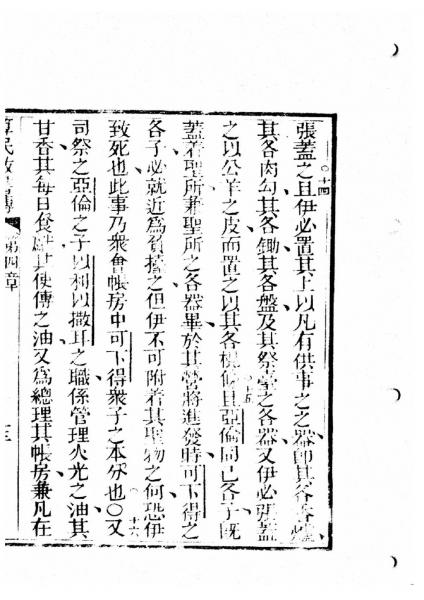 十四
張蓋之且伊必置其上以凡有供事之之器即其各香爐
其各肉勾其各鋤其各盤及其祭臺之各器又伊必張蓋
之以公羊之皮而置之以其各槓 十五 且亞倫同已各子既
蓋著聖所兼聖所之各器畢於其營將進發時可下得之
各子必就近爲負擡之但伊不可附着其聖物之何恐伊
致死也此事乃衆會帳房中可下得衆子之本分也○ 十六 又
司祭之亞倫之子以利以撒耳之職係管理火光之油其
甘香其每日食 其使傳之油又爲總理其帳房兼凡在
民 傳 第四章